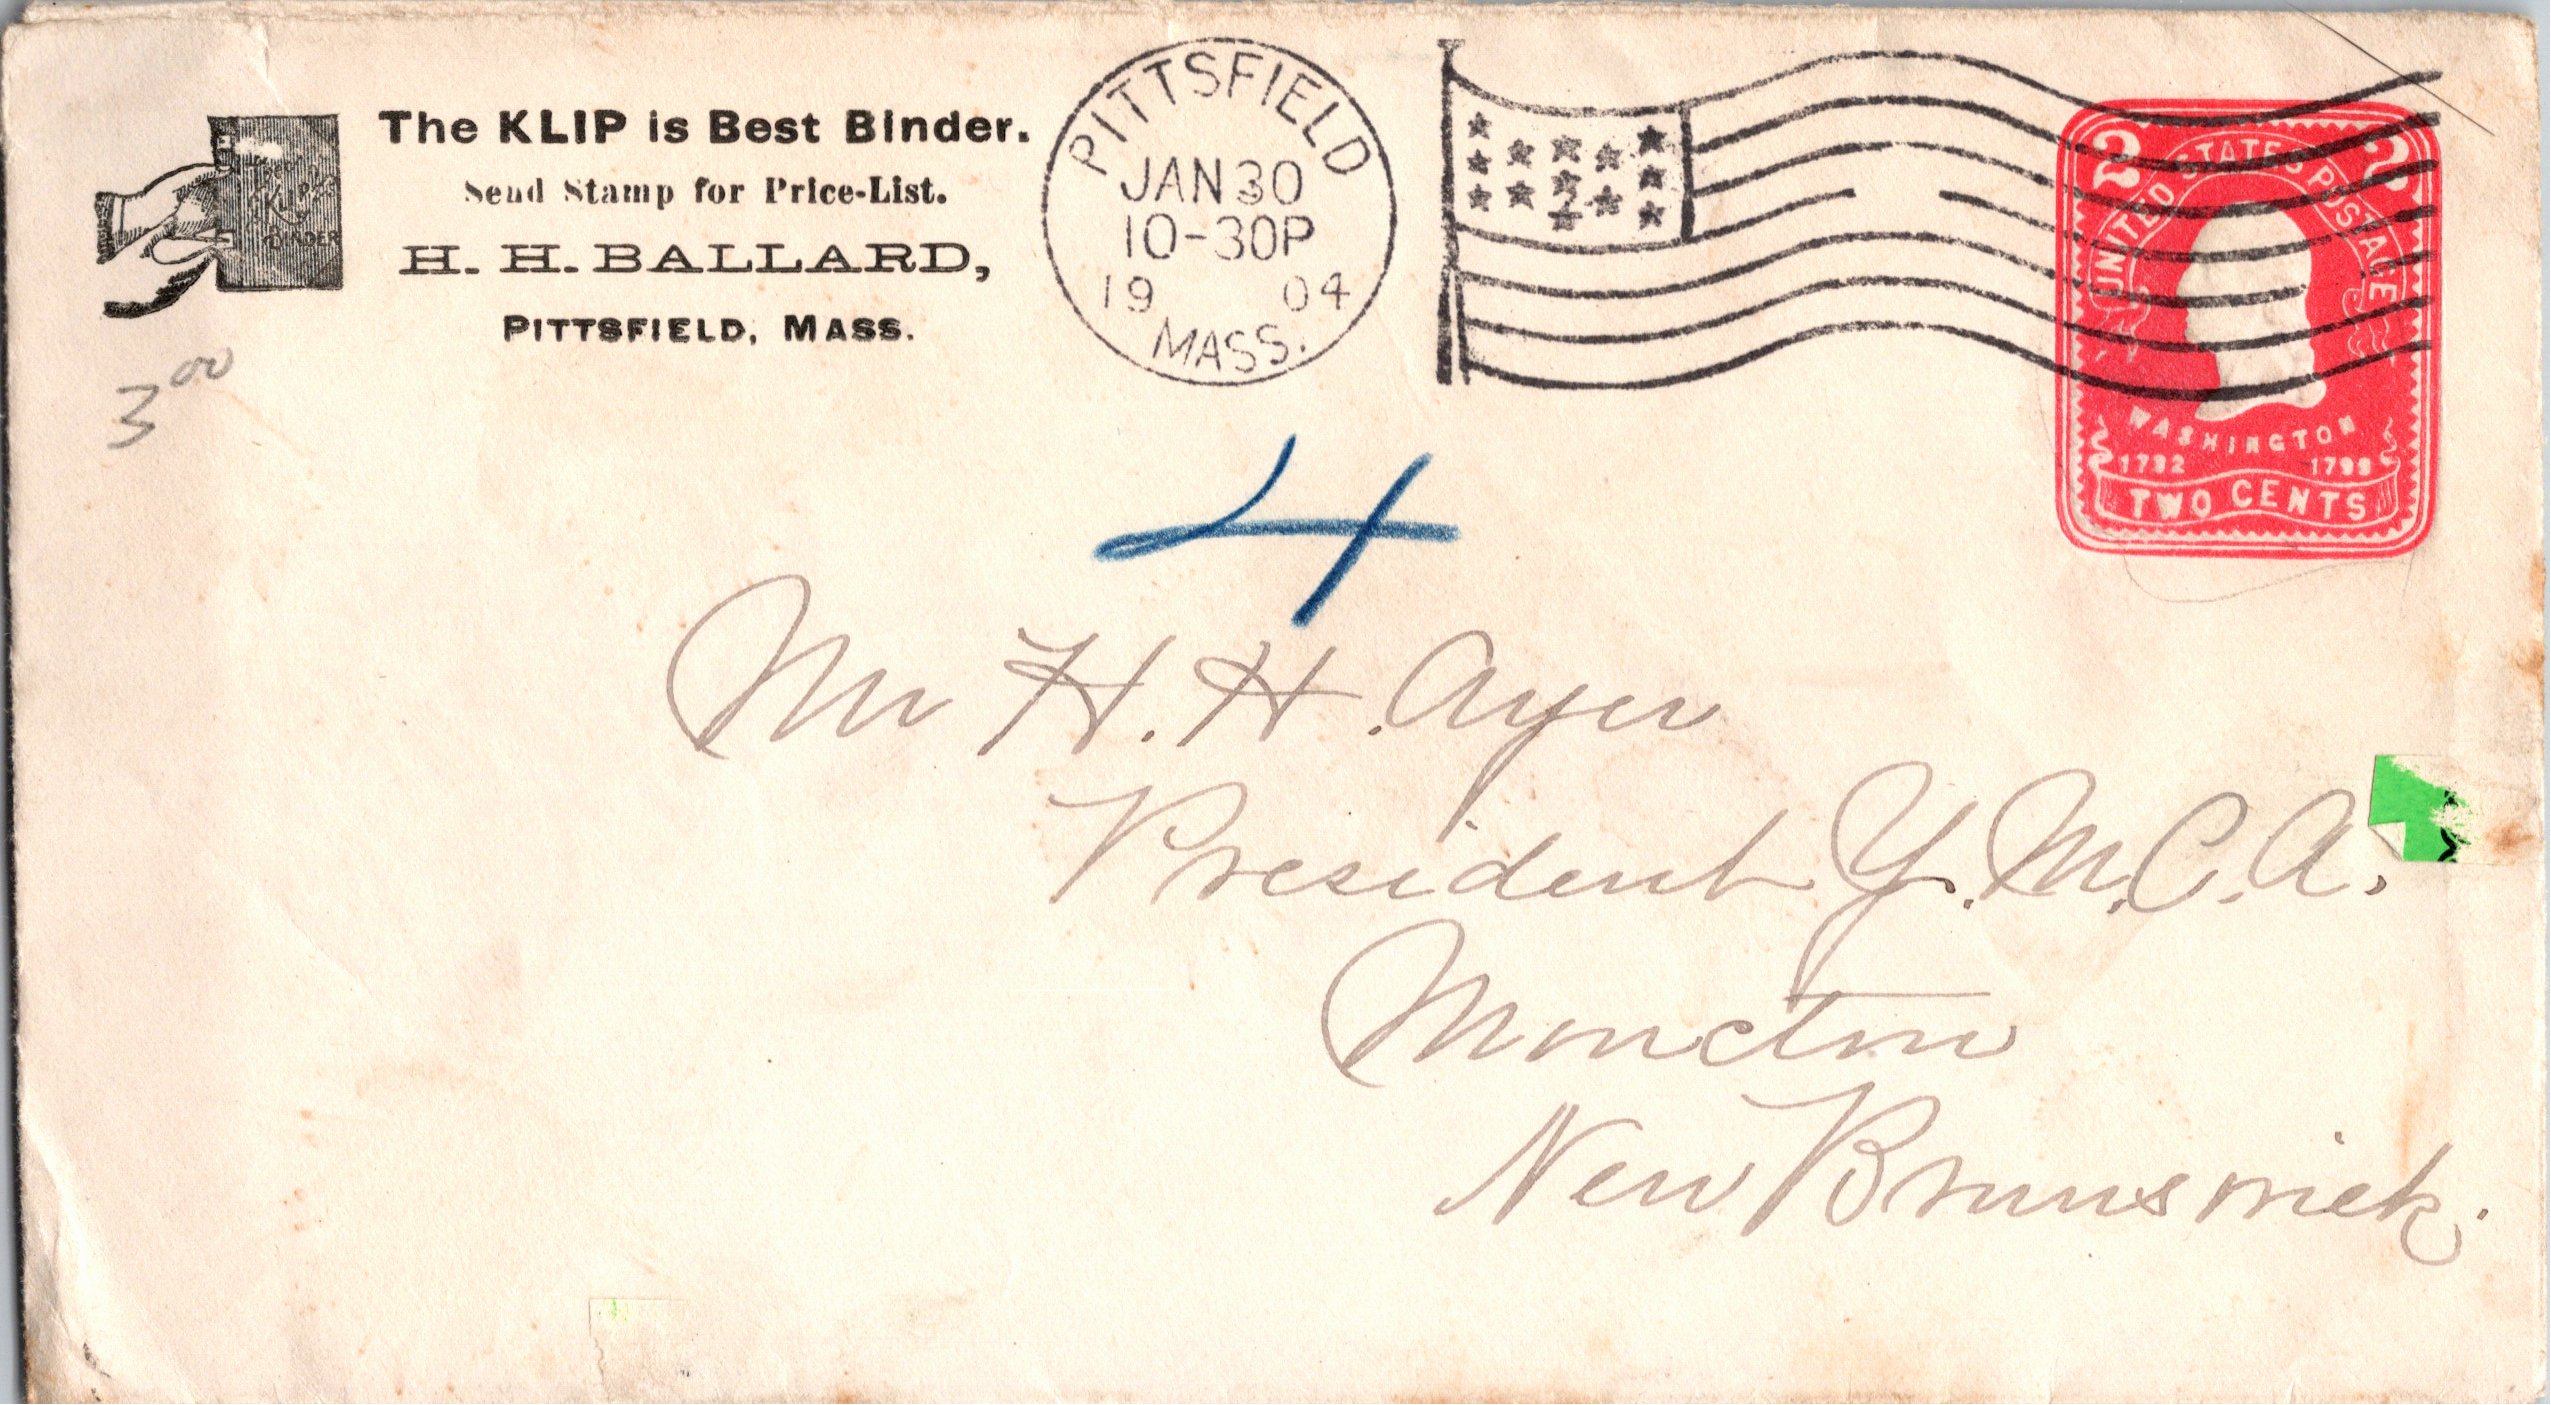 The KLIP is Best Binder.
Send Stamp for Price-List.
H. H. BALLARD,
PITTSFIELD, MASS.
The
Klip
BINDER
3 00
PITTSFIELD
JAN 30
10-30P
19 04
MASS.
2 2
UNITED STATES POSTAGE
WASHINGTON
1732 1799
TWO CENTS
4
Mr H. H. Ayer
President Y.M.C.A.
Moncton
New Brunswick.